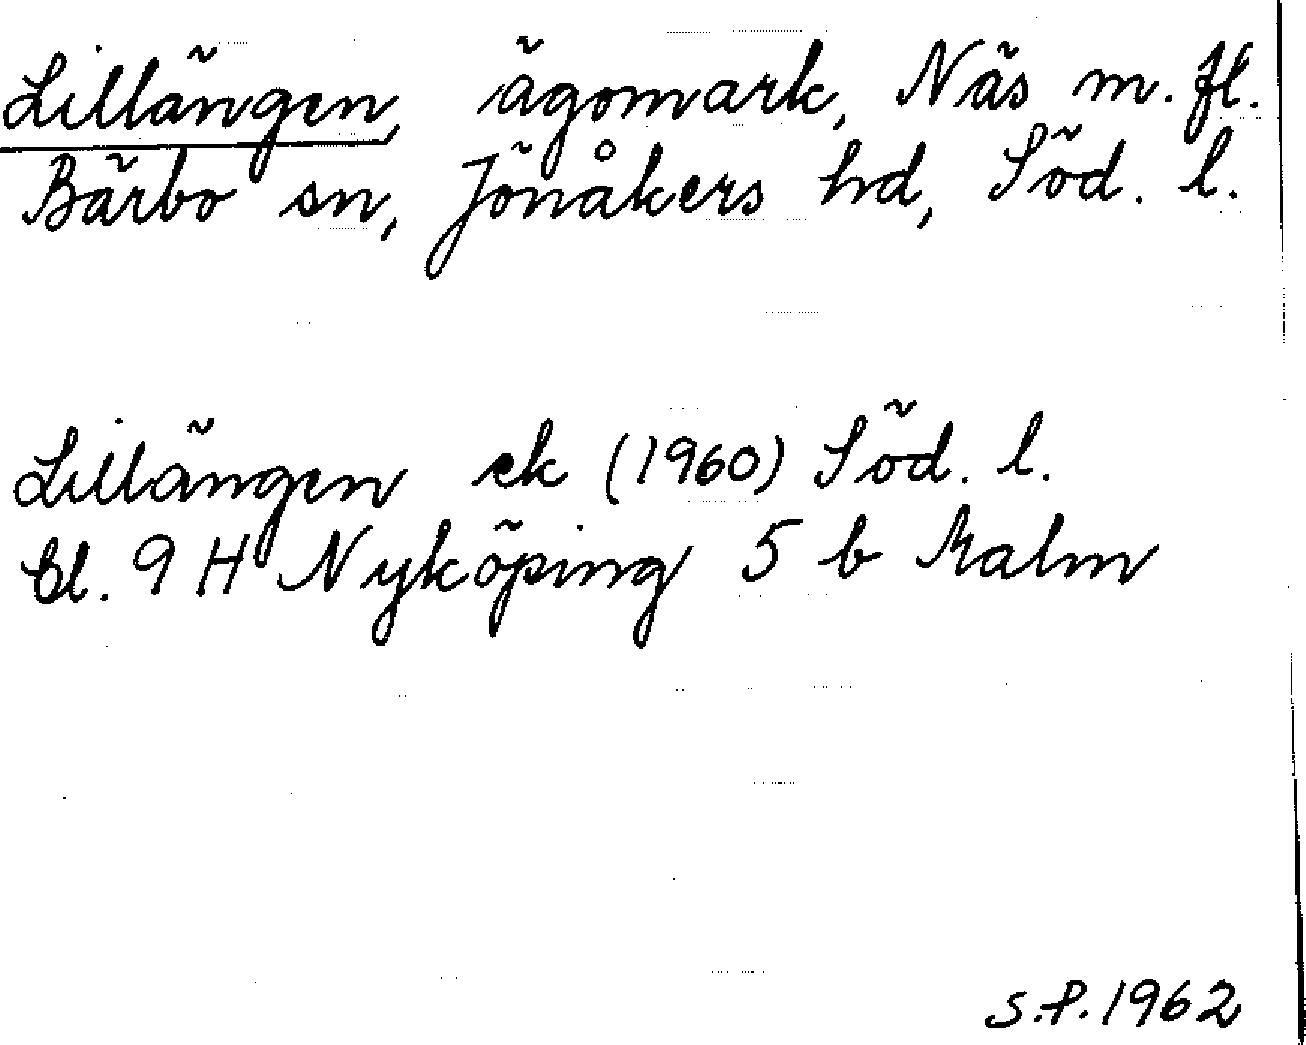 Lillängen, ägomark, Näs m. fl.
Bärbo sn, Jönåkers hd, Söd. l.
Lillängen ek (1960) Söd. l.
bl. 9 H Nyköping 5 b Malm
S.P. 1962